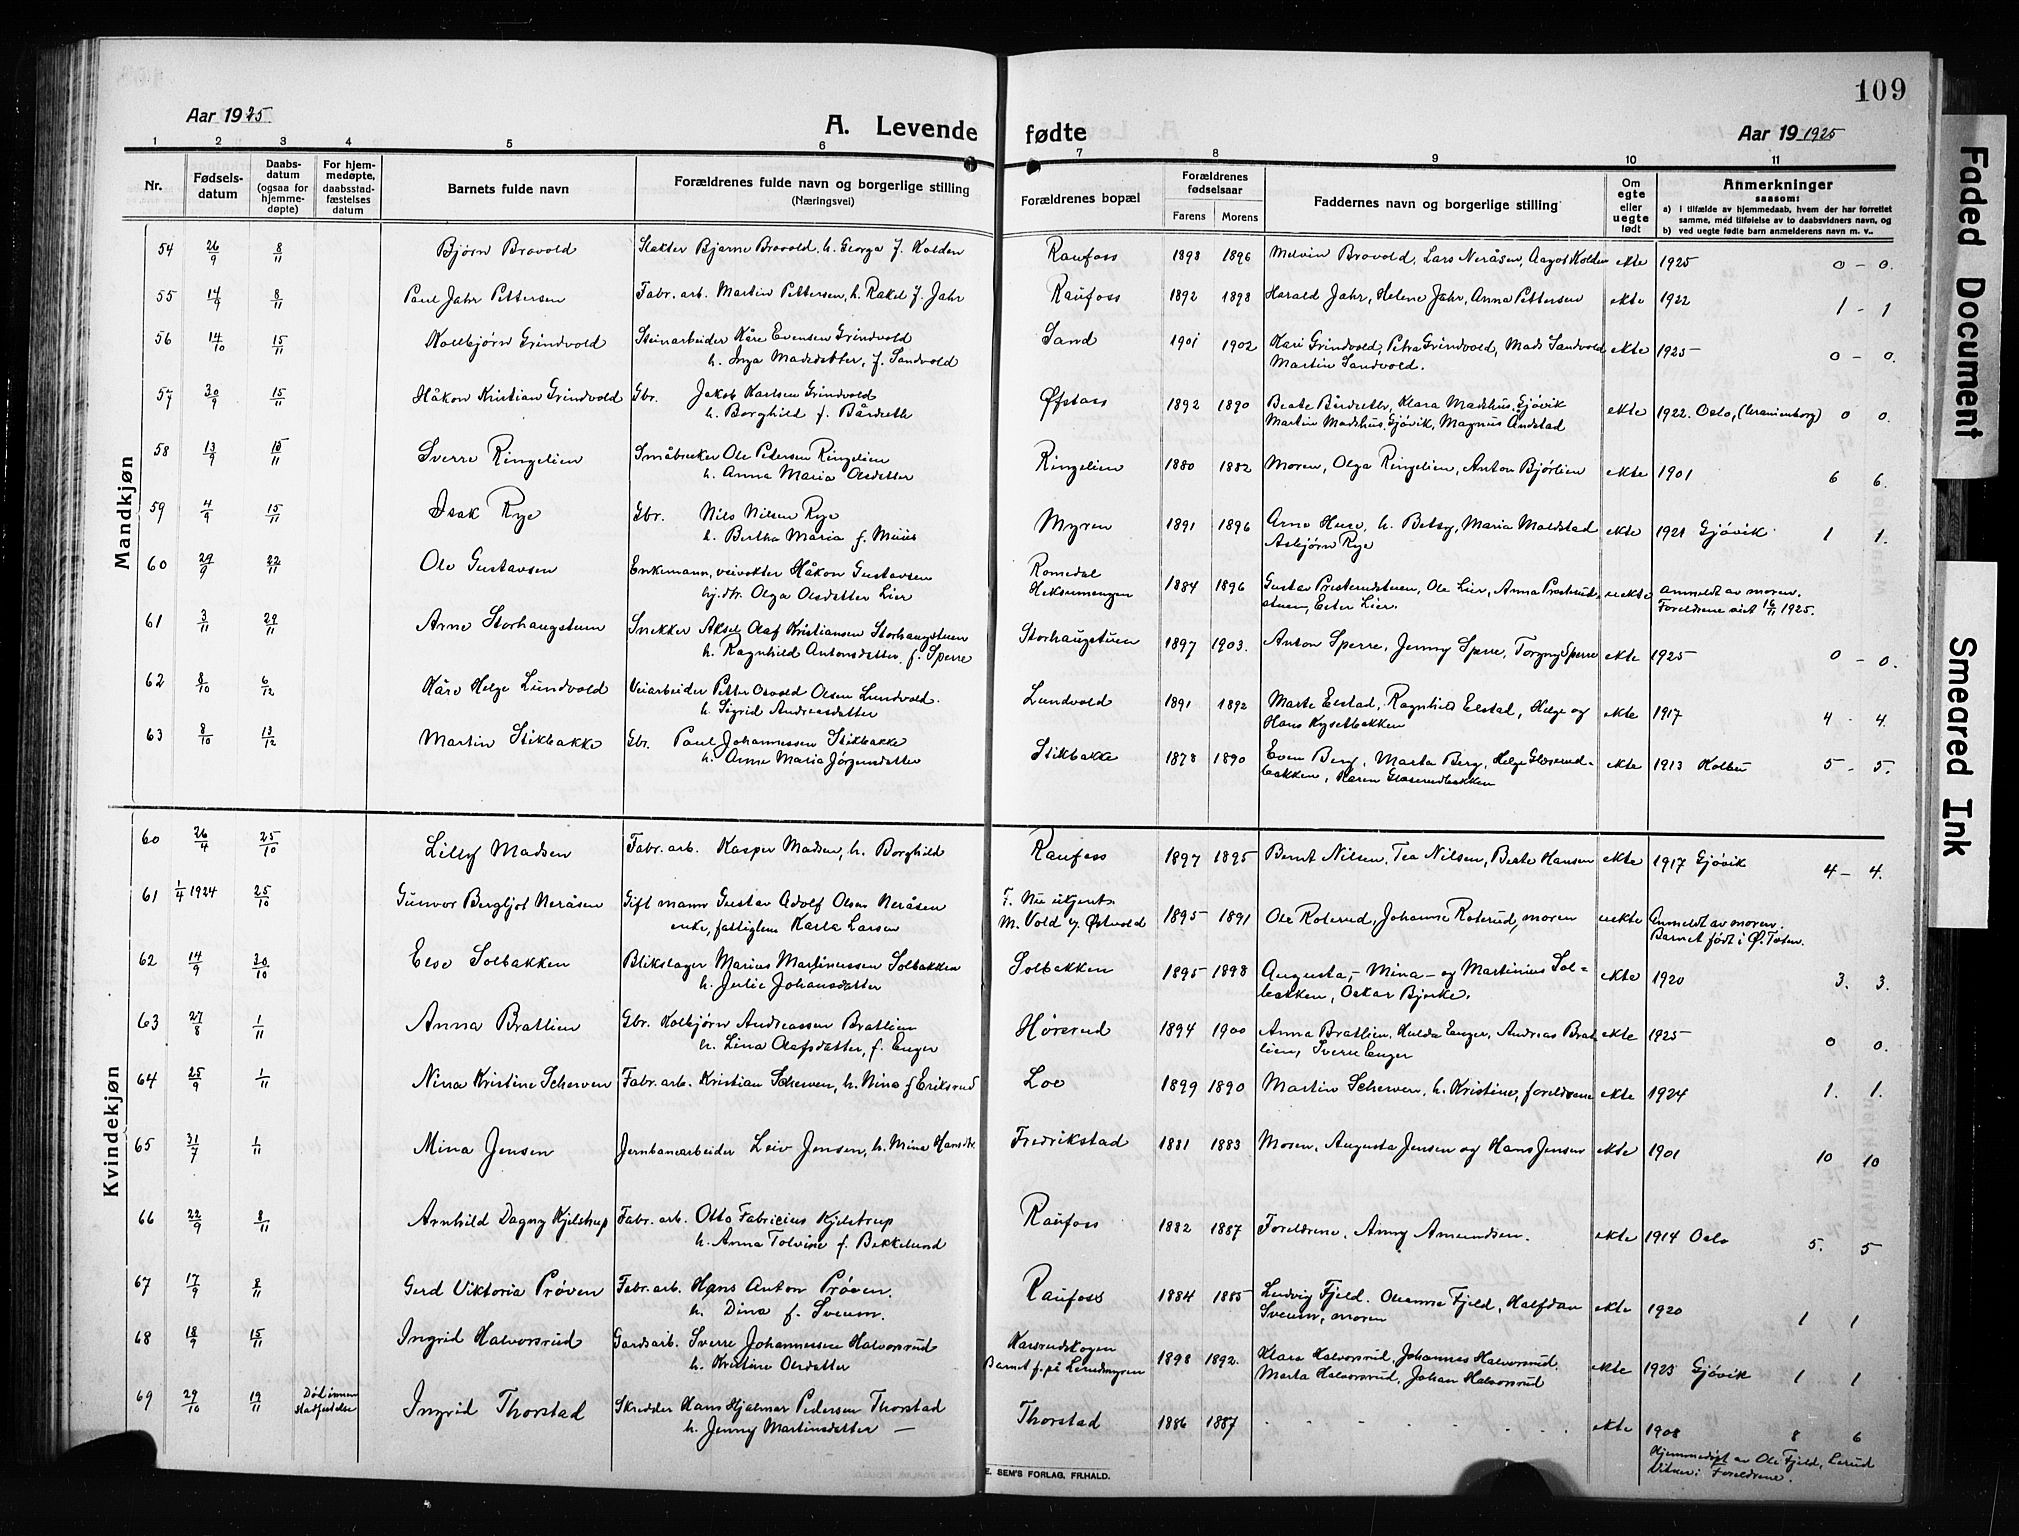 109
Aar 1925
A. Levende fødte
Aar 19 1925
1 2 3 4 5 6 7 8 9 10 11
Nr.
Fødsels-datum
Daabs-datum (ogsaa for hjemme-døpte)
For hjem-medøpte, daabsstad-fæstelses datum
Barnets fulde navn
Forældrenes fulde navn og borgerlige stilling (Næringsvei)
Forældrenes bopæl
Forældrenes fødselsaar
Farens Morens
Faddernes navn og borgerlige stilling
Om egte eller uegte født
Anmerkninger saasom:
a) i tilfælde av hjemmedaab, hvem der har forrettet samme, med tilføielse av to daabsvidners navn, og
b) ved uegte fødte barn anmelderens navn m. v..
Mandkjøn
54 26/9 8/11 Bjørn Bravold Slakter Bjarne Bravold, h. Georga f. Kolden Raufoss 1898 1896 Melvin Bravold, Lars Neråsen, Aagot Kolden ekte 1925 0 - 0.
55 14/9 8/11 Paul Jahr Pettersen Fabr. arb. Martin Pettersen, h. Rakel f. Jahr Raufoss 1892 1898 Harald Jahr, Helene Jahr, Anna Pettersen ekte 1922 1 - 1
56 14/10 15/11 Kolbjørn Grindvold Steinarbeider Kåre Evensen Grindvold Sand 1901 1902 Kari Grindvold, Petra Grindvold, Mads Sandvold ekte 1925 0 - 0.
h. Inga Madsdatter, f. Sandvold Martin Sandvold.
57 30/9 15/11 Håkon Kristian Grindvold Gbr. Jakob Karlsen Grindvold Øfstaas 1892 1890 Beate Bårdseth, Klara Madshus, Gjøvik ekte 1922. Oslo, (Uranienborg) 0 0.
h. Borghild f. Bårdseth Martin Madshus, Gjøvik, Magnus Andstad
58 13/9 15/11 Sverre Ringelien Småbruker Ole Petersen Ringelien Ringelien 1880 1882 Moren, Olga Ringelien, Anton Bjørlien ekte 1901 6 6.
h. Anna Maria Olsdatter
59 4/9 15/11 Isak Rye Gbr. Nils Nilsen Rye Myren 1891 1896 Arne Huse, h. Betsy, Maria Moldstad ekte 1921 Gjøvik 1 1.
h. Bertha Maria f. Muus Asbjørn Rye
60 29/9 22/11 Ole Gustavsen Enkemann, veivokter Håkon Gustavsen Romedal 1884 1896 Gustav Presterudstuen, Ole Lier, Anna Presterud- uekte anmeldt av moren.
hj. dtr. Olga Olsdatter Lier stuen, Ester Lier. Foreldrene viet 16/11 1925.
61 3/11 29/11 Arne Storhaugstuen Snekker Aksel Olaf Kristiansen Storhaugstuen Storhaugstuen 1897 1903. Anton Sperre, Jenny Sperre, Torgny Sperre ekte 1925 0 - 0.
h. Ragnhild Antonsdatter f. Sperre
62 8/10 6/12 Kåre Helge Lundvold Veiarbeider Petter Osvald Olsen Lundvold. Lundvold 1891 1892 Marte Elstad, Ragnhild Elstad, Helge og ekte 1917 4 - 4.
h. Sigrid Andreasdatter Hans Kysetbakken
63 8/10 13/12 Martin Stikbakke Gbr. Paul Johannessen Stikbakke Stikbakke 1878 1890 Even Berg, Marta Berg, Helge Glæserud- ekte 1913 Kolbu 5 - 5.
h. Anne Maria Jørgensdatter bakken, Karen Glæserudbakken
Kvindekjøn
60 26/4 25/10 Lilly Madsen Fabr. arb. Kasper Madsen, h. Borghild Raufoss 1897 1895 Bernt Nilsen, Tea Nilsen, Beate Hansen ekte 1917 Gjøvik 4 - 4.
61 1/4 1924 25/10 Gunvor Bergljot Neråsen Gift mann Gustav Adolf Olsen Neråsen F. Nu utgent. 1895 1891 Ole Roterud, Johanne Roterud, moren uekte Anmeldt av moren.
enke, fattiglem Karla Larsen M. Vold y Østvold Barnet født i Ø. Toten.
62 14/9 30/10 Else Solbakken Blikslager Marius Martinussen Solbakken Solbakken 1895 1898 Augusta, - Mina - og Martinius Sol- ekte 1920 3. 3.
h. Julie Johansdatter bakken, Oskar Bjerke.
63 27/8 1/11 Anna Bratlien Gbr. Kolbjørn Andreassen Bratlien Hørsrud 1894 1900 Anna Bratlien, Hulda Enger, Andreas Brat ekte 1925 0 0.
h. Lina Olafsdatter, f. Enger lien, Sverre Enger
64 25/9 1/11 Nina Kristine Scherven Fabr. arb. Kristian Scherven, h. Nina f Eriksrud Loe 1899 1890 Martin Scherven, h. Kristine, foreldrene ekte 1924 1. 1.
65 31/7 1/11 Mina Jensen Jernbanearbeider Leiv Jensen, h. Mina Hansdtr. Fredrikstad 1881 1883 Moren, Augusta Jensen og Hans Jensen ekte 1901 10 10
66 22/9 8/11 Arnhild Dagny Kjelstrup Fabr. arb. Otto Fabricius Kjelstrup Raufoss 1882 1887 Foreldrene, Anny Amundsen. ekte 1914 Oslo 5. 5
h. Anna Tolvine f. Bekkelund
67 17/9 8/11 Gerd Viktoria Prøven Fabr. arb. Hans Anton Prøven. Raufoss 1884 1885 Ludvig Fjeld. Oleanna Fjeld, Halfdan ekte 1920 1 1
h. Dina f. Sveum. Sveum, moren
68 18/9 15/11 Ingrid Halvorsrud Gardsarb. Sverre Johannessen Halvorsrud Karsrudskogen 1898 1892. Klara Halvorsrud, Johannes Halvorsrud ekte 1925 Gjøvik 1 1
h. Kristine Olsdatter Barnet f. på Lerudmyren Marta Halvorsrud, Johan Halvorsrud
69 29/10 19/11 Død innen stadfestelse Ingrid Thorstad Skredder Hans Hjalmar Pedersen Thorstad Thorstad 1886 1887 ekte 1908 8 6
h. Jenny Martinsdatter — Hjemmedøpt av Ole Fjeld, Lerud
Vitner: Foreldrene.
E. SEM'S FORLAG, FR.HALD.
Faded Document
Smeared Ink